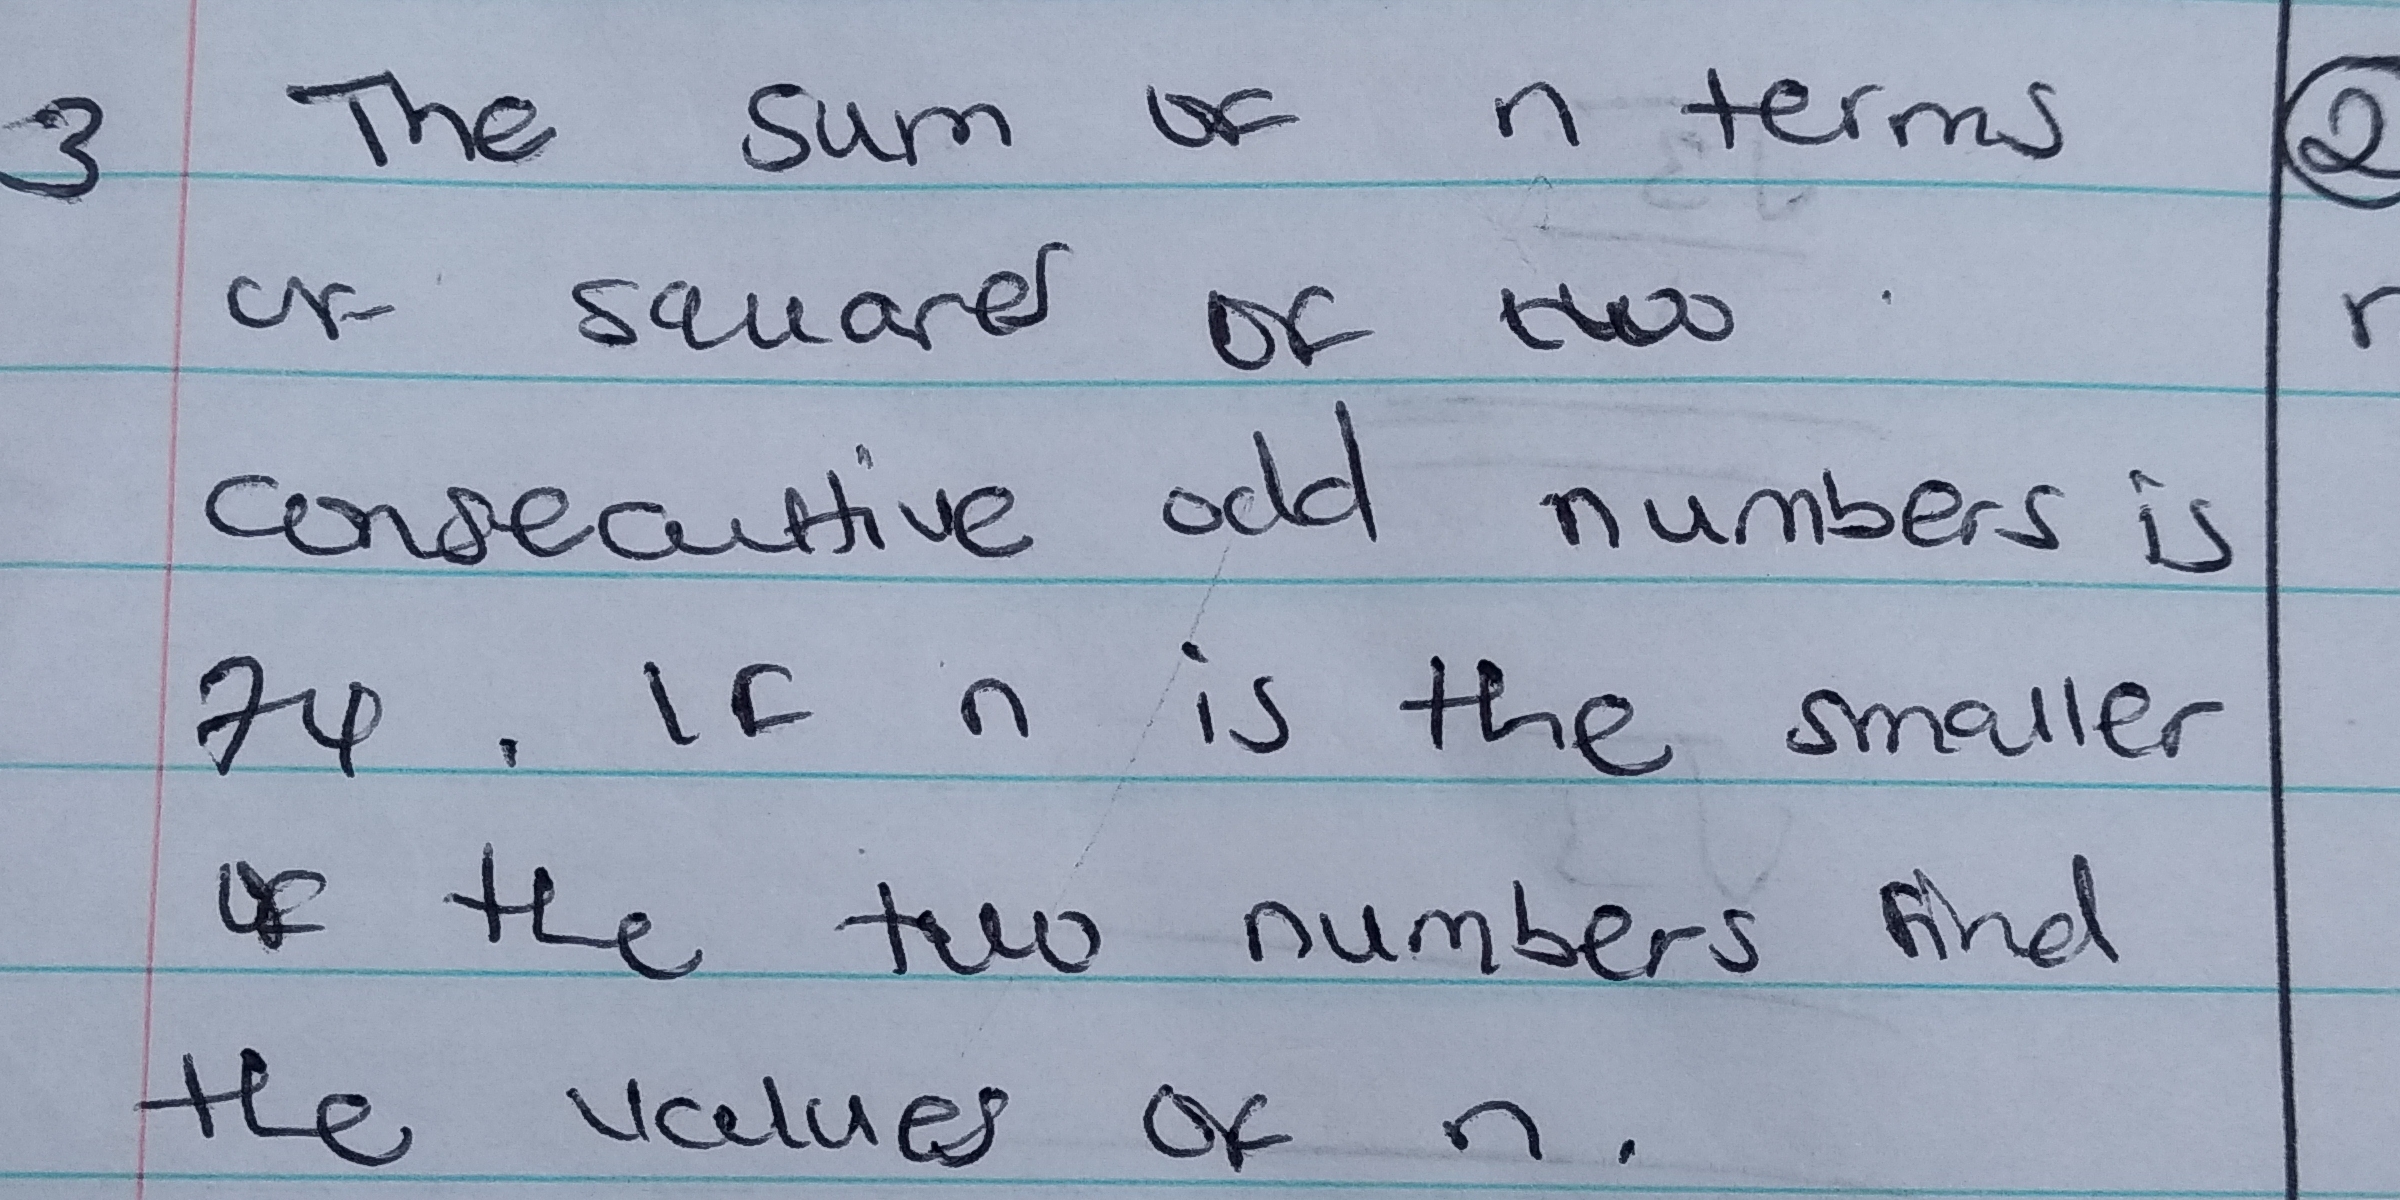 3 The sum of n terms ②
of squares of two r
consecuttive odd numbers is
74. If n is the smaller
of the two numbers find
the values of n.